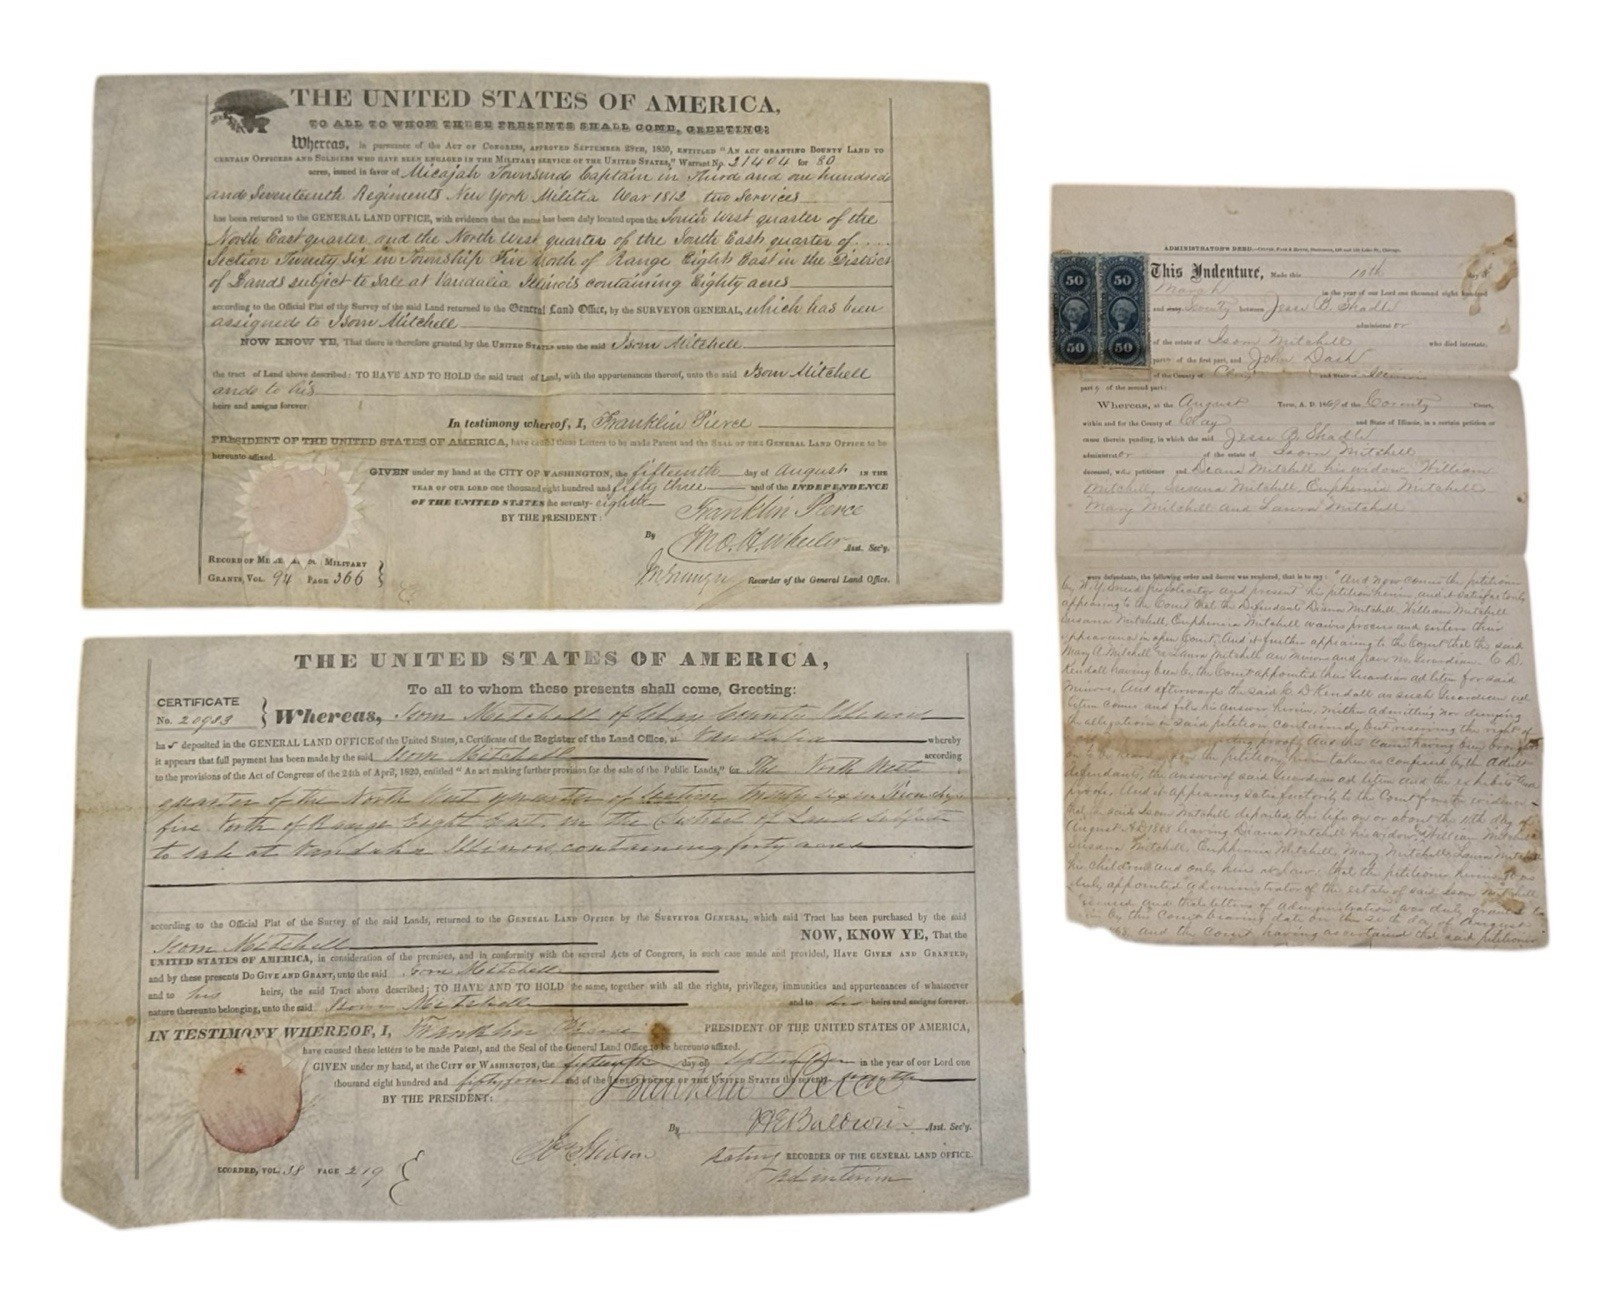 THE UNITED STATES OF AMERICA,
TO ALL TO WHOM THESE PRESENTS SHALL COME, GREETING:
Whereas, in pursuance of the Act of Congress, approved September 28th, 1850, entitled "An act granting Bounty Land to
certain Officers and Soldiers who have been engaged in the Military service of the United States," Warrant No. 21404 for 80
acres, issued in favor of Micajah Townsend Captain in Third and one hundred
and Seventeenth Regiments New York Militia War 1812 two Services
has been returned to the GENERAL LAND OFFICE, with evidence that the same has been duly located upon the South West quarter of the
North East quarter and the North West quarter of the South East quarter of....
Section Twenty Six in Township Five North of Range Eight East in the District
of Lands subject to Sale at Vandalia Illinois containing Eighty acres
according to the Official Plat of the Survey of the said Land returned to the General Land Office, by the SURVEYOR GENERAL, which has been
assigned to Isom Mitchell
NOW KNOW YE, That there is therefore granted by the UNITED STATES unto the said Isom Mitchell
the tract of Land above described: TO HAVE AND TO HOLD the said tract of Land, with the appurtenances thereof, unto the said Isom Mitchell
and to his
heirs and assigns forever.
In testimony whereof, I, Franklin Pierce
PRESIDENT OF THE UNITED STATES OF AMERICA, have caused these Letters to be made Patent and the Seal of the General Land Office to be
hereunto affixed.
GIVEN under my hand at the CITY OF WASHINGTON, the fifteenth day of August IN THE
YEAR OF OUR LORD one thousand eight hundred and fifty three and of the INDEPENDENCE
OF THE UNITED STATES the seventy-eighth
BY THE PRESIDENT: Franklin Pierce
By Jno. H. Wheeler Asst. Sec'y.
Recorder of the General Land Office.
RECORD OF MILITARY
GRANTS, VOL. 94 PAGE 366
THE UNITED STATES OF AMERICA,
To all to whom these presents shall come, Greeting:
CERTIFICATE
No. 20983
Whereas, Isom Mitchell of Clay County Illinois
has deposited in the GENERAL LAND OFFICE of the United States, a Certificate of the Register of the Land Office, at Vandalia whereby
it appears that full payment has been made by the said Isom Mitchell according
to the provisions of the Act of Congress of the 24th of April, 1820, entitled "An act making further provision for the sale of the Public Lands," for The North West
quarter of the North East quarter of Section twenty six in Township
five North of Range Eight East in the District of Lands subject
to sale at Vandalia Illinois, containing forty acres
according to the Official Plat of the Survey of the said Lands, returned to the GENERAL LAND OFFICE by the SURVEYOR GENERAL, which said Tract has been purchased by the said
Isom Mitchell NOW, KNOW YE, That the
UNITED STATES OF AMERICA, in consideration of the premises, and in conformity with the several Acts of Congress, in such case made and provided, HAVE GIVEN AND GRANTED,
and by these presents DO GIVE AND GRANT, unto the said Isom Mitchell
and to his heirs, the said Tract above described; TO HAVE AND TO HOLD the same, together with all the rights, privileges, immunities and appurtenances of whatsoever
nature thereunto belonging, unto the said Isom Mitchell and to his heirs and assigns forever.
IN TESTIMONY WHEREOF, I, Franklin Pierce PRESIDENT OF THE UNITED STATES OF AMERICA,
have caused these letters to be made Patent, and the Seal of the General Land Office to be hereunto affixed.
GIVEN under my hand, at the CITY OF WASHINGTON, the fifteenth day of September in the year of our Lord one
thousand eight hundred and fifty four and of the INDEPENDENCE OF THE UNITED STATES the seventy-
BY THE PRESIDENT: Franklin Pierce
By H E Baldwin Asst. Sec'y.
Acting RECORDER OF THE GENERAL LAND OFFICE.
Ad interim
ECORDED, VOL. 58 PAGE 219
50 50
50 50
ADMINISTRATOR'S DEED.
This Indenture, Made this 10th day
March in the year of our Lord one thousand eight hundred
and Seventy between Jesse B. Shadle
administrator
of the estate of Isom Mitchell who died intestate,
part of the first part, and John Dash
of the County of Clay and State of Illinois
party of the second part:
Whereas, at the August Term, A. D. 1869 of the County Court,
within and for the County of Clay and State of Illinois, in a certain petition or
cause therein pending, in which the said Jesse B. Shadle
administrator of the estate of Isom Mitchell
deceased, was petitioner and Diana Mitchell his widow, William
Mitchell, Susana Mitchell, Euphemia Mitchell
Mary Mitchell and Laura Mitchell
were defendants, the following order and decree was rendered, that is to say: "And now comes the petitioner
by his solicitor and present his petition herein, and it satisfactorily
appearing to the Court that the Defendants Diana Mitchell, William Mitchell
Susana Mitchell, Euphemia Mitchell waive process and enters their
appearance in open Court, And it further appearing to the Court that the said
Mary A Mitchell & Laura Mitchell are minors and have no Guardian C. D.
Kendall having been by the Court appointed their Guardian ad litem for said
Minors, And afterwards the said C. D Kendall as such Guardian ad
litem comes and files his answer herein, neither Admitting nor denying
the allegations in said petition contained, but reserving the right of
proofs And this Cause having been brought
the petition, taken as confessed by the Adult
defendants, the answer of said Guardian ad litem and the exhibits and
proofs, And it appearing satisfactorily to the Court from the evidence
that said Isom Mitchell departed this life on or about the 11th day of
August A.D. 1868 leaving Diana Mitchell his widow, William Mitchell
Susana Mitchell, Euphemia Mitchell, Mary Mitchell & Laura Mitchell
his children and only heirs at law: that the petitioner
duly appointed Administrator of the estate of said Isom Mitchell
and that letters of Administration was duly granted to
by this Court bearing date on the day of August
and the Court having ascertained that said petitioner